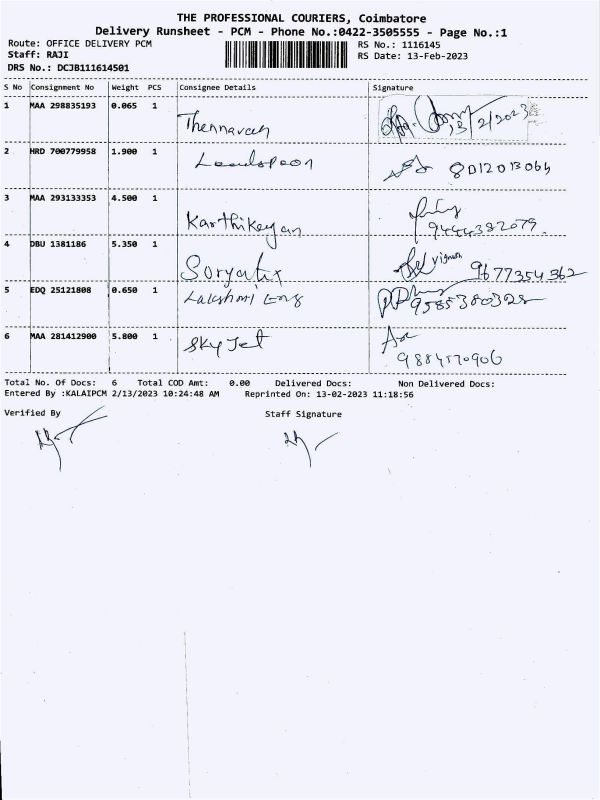 THE PROFESSIONAL COURIERS, Coimbatore
Delivery Runsheet - PCM - Phone No.:0422-3505555 - Page No.:1
Route: OFFICE DELIVERY PCM RS No.: 1116145
Staff: RAJI RS Date: 13-Feb-2023
DRS No.: DCJB111614501
S No Consignment No Weight PCS Consignee Details Signature
1 MAA 298835193 0.065 1 13/2/2023
2 HRD 700779958 1.900 1 8012013064
3 MAA 293133353 4.500 1 Karthikeyan 9444382079.
4 DBU 1381186 5.350 1 Vignesh 9677354362
5 EDQ 25121808 0.650 1 Lakshmi Eng 9585380328
6 MAA 281412900 5.800 1 Sky Jet
Total No. Of Docs: 6 Total COD Amt: 0.00 Delivered Docs: Non Delivered Docs:
Entered By :KALAIPCM 2/13/2023 10:24:48 AM Reprinted On: 13-02-2023 11:18:56
Verified By Staff Signature